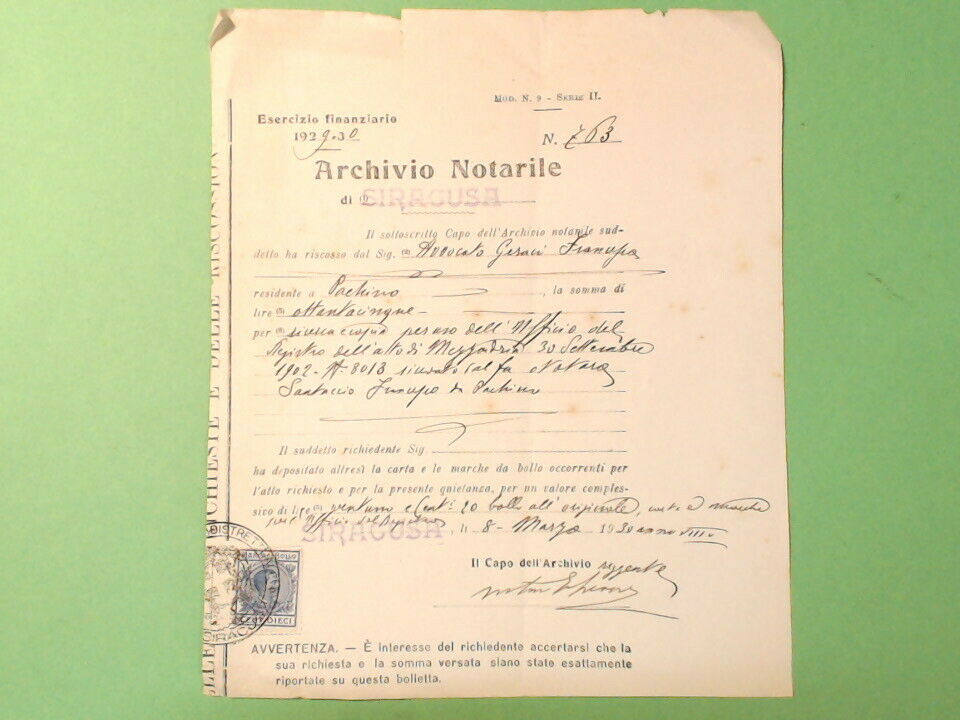 Mod. N. 9 - Serie II.
Esercizio finanziario
1929-30
N. 763
Archivio Notarile
di (1) SIRAGUSA
Il sottoscritto Capo dell'Archivio notarile sud-
detto ha riscosso dal Sig. (2) Avvocato Geraci
residente a Pachino, la somma di
lire (3) ottantacinque
per (4) copia per uso dell'Ufficio del
Registro dell'atto di Mezzadria 30 Settembre
1902 - N 8013 rogato dal fu Notaro
di Pachino
Il suddetto richiedente Sig.
ha depositato altresì la carta e le marche da bollo occorrenti per
l'atto richiesto e per la presente quietanza, per un valore comples-
sivo di lire (3) ventuno e Cent: 20 bollo all'originale, carta e marche
per l'Ufficio del Registro
SIRAGUSA, li 8 - Marzo 1930 anno VIII
Il Capo dell'Archivio reggente
DISTRETTUALE
MARCA DA BOLLO
CENT. DIECI
SIRACUSA
RICHIESTE E DELLE RISCOSSIONI
AVVERTENZA. — È interesse del richiedente accertarsi che la
sua richiesta e la somma versata siano state esattamente
riportate su questa bolletta.